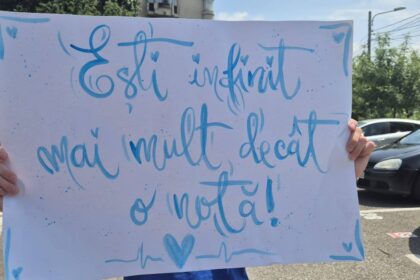 Ești infinit
mai mult decât
o notă!